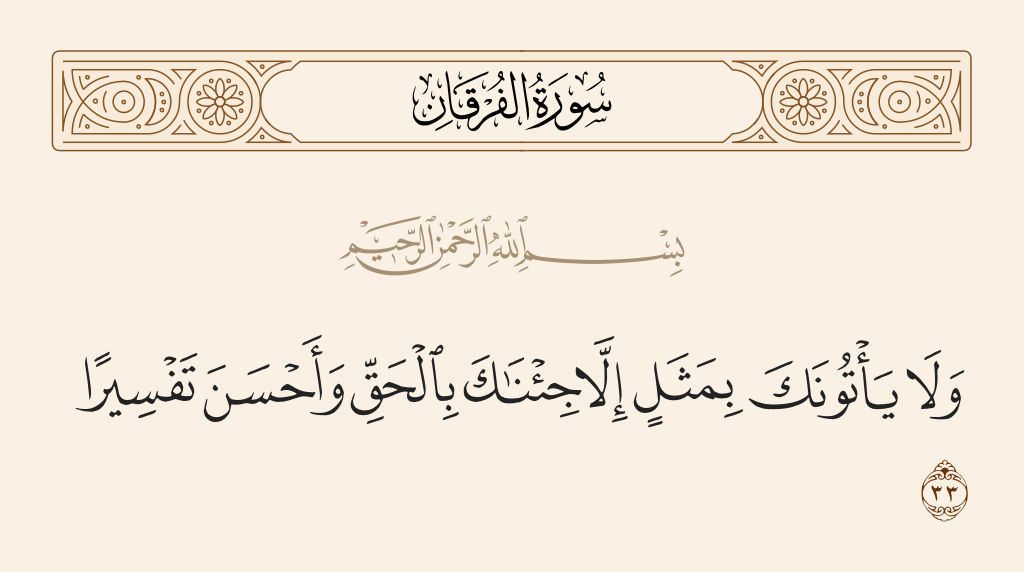 سُورَةُ الفُرْقَانِ
بِسْمِ ٱللَّهِ ٱلرَّحْمَٰنِ ٱلرَّحِيمِ
وَلَا يَأْتُونَكَ بِمَثَلٍ إِلَّا جِئْنَٰكَ بِٱلْحَقِّ وَأَحْسَنَ تَفْسِيرًا
٣٣